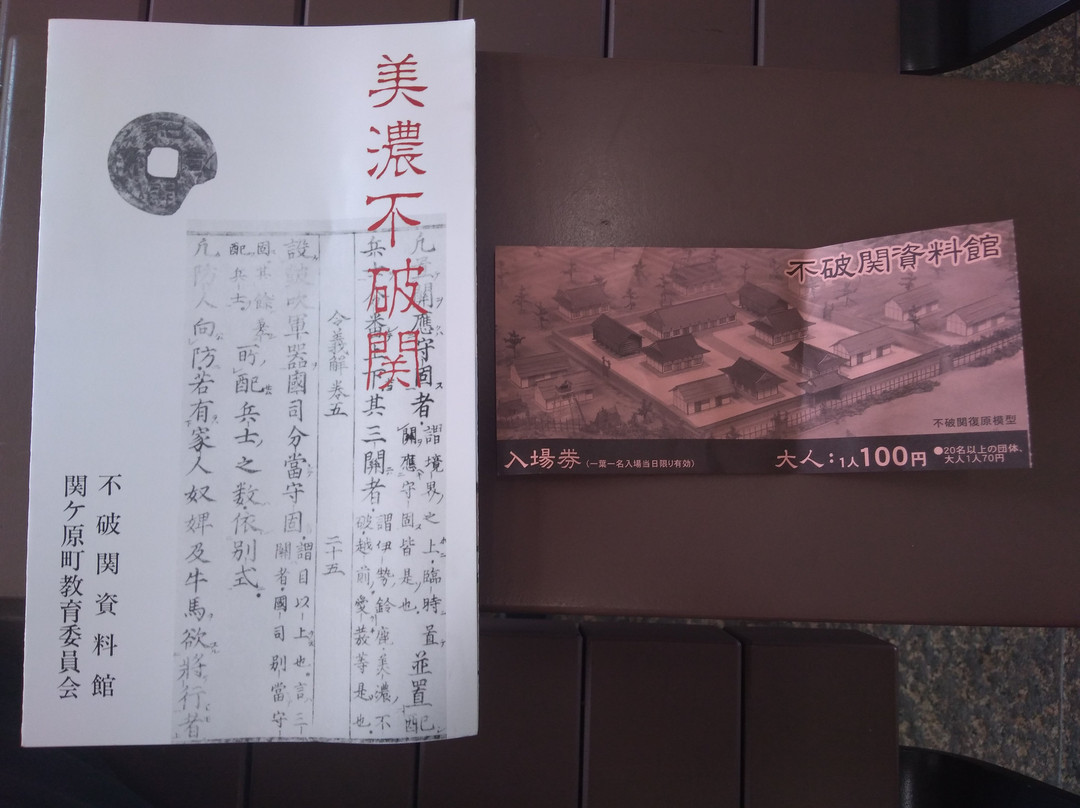 美濃不破関
凡置關應守固者。謂境界之上。臨時置
關應守固皆是也。
並置配
兵士分番上下其三關者。謂伊勢鈴鹿。美濃不
破。越前愛發等是也。
令義解 巻五 二十五
設鼓吹軍器國司分當守固。謂目以上也。言三
關者。國司別當守
固。其餘差
配兵士。
所配兵士之数依別式。
凡防人向防若有家人奴婢及牛馬欲將行者
不破関資料館
関ケ原町教育委員会
不破関資料館
不破関復原模型
入場券(一葉一名入場当日限り有効)
大人:1人100円
●20名以上の団体、
大人1人70円